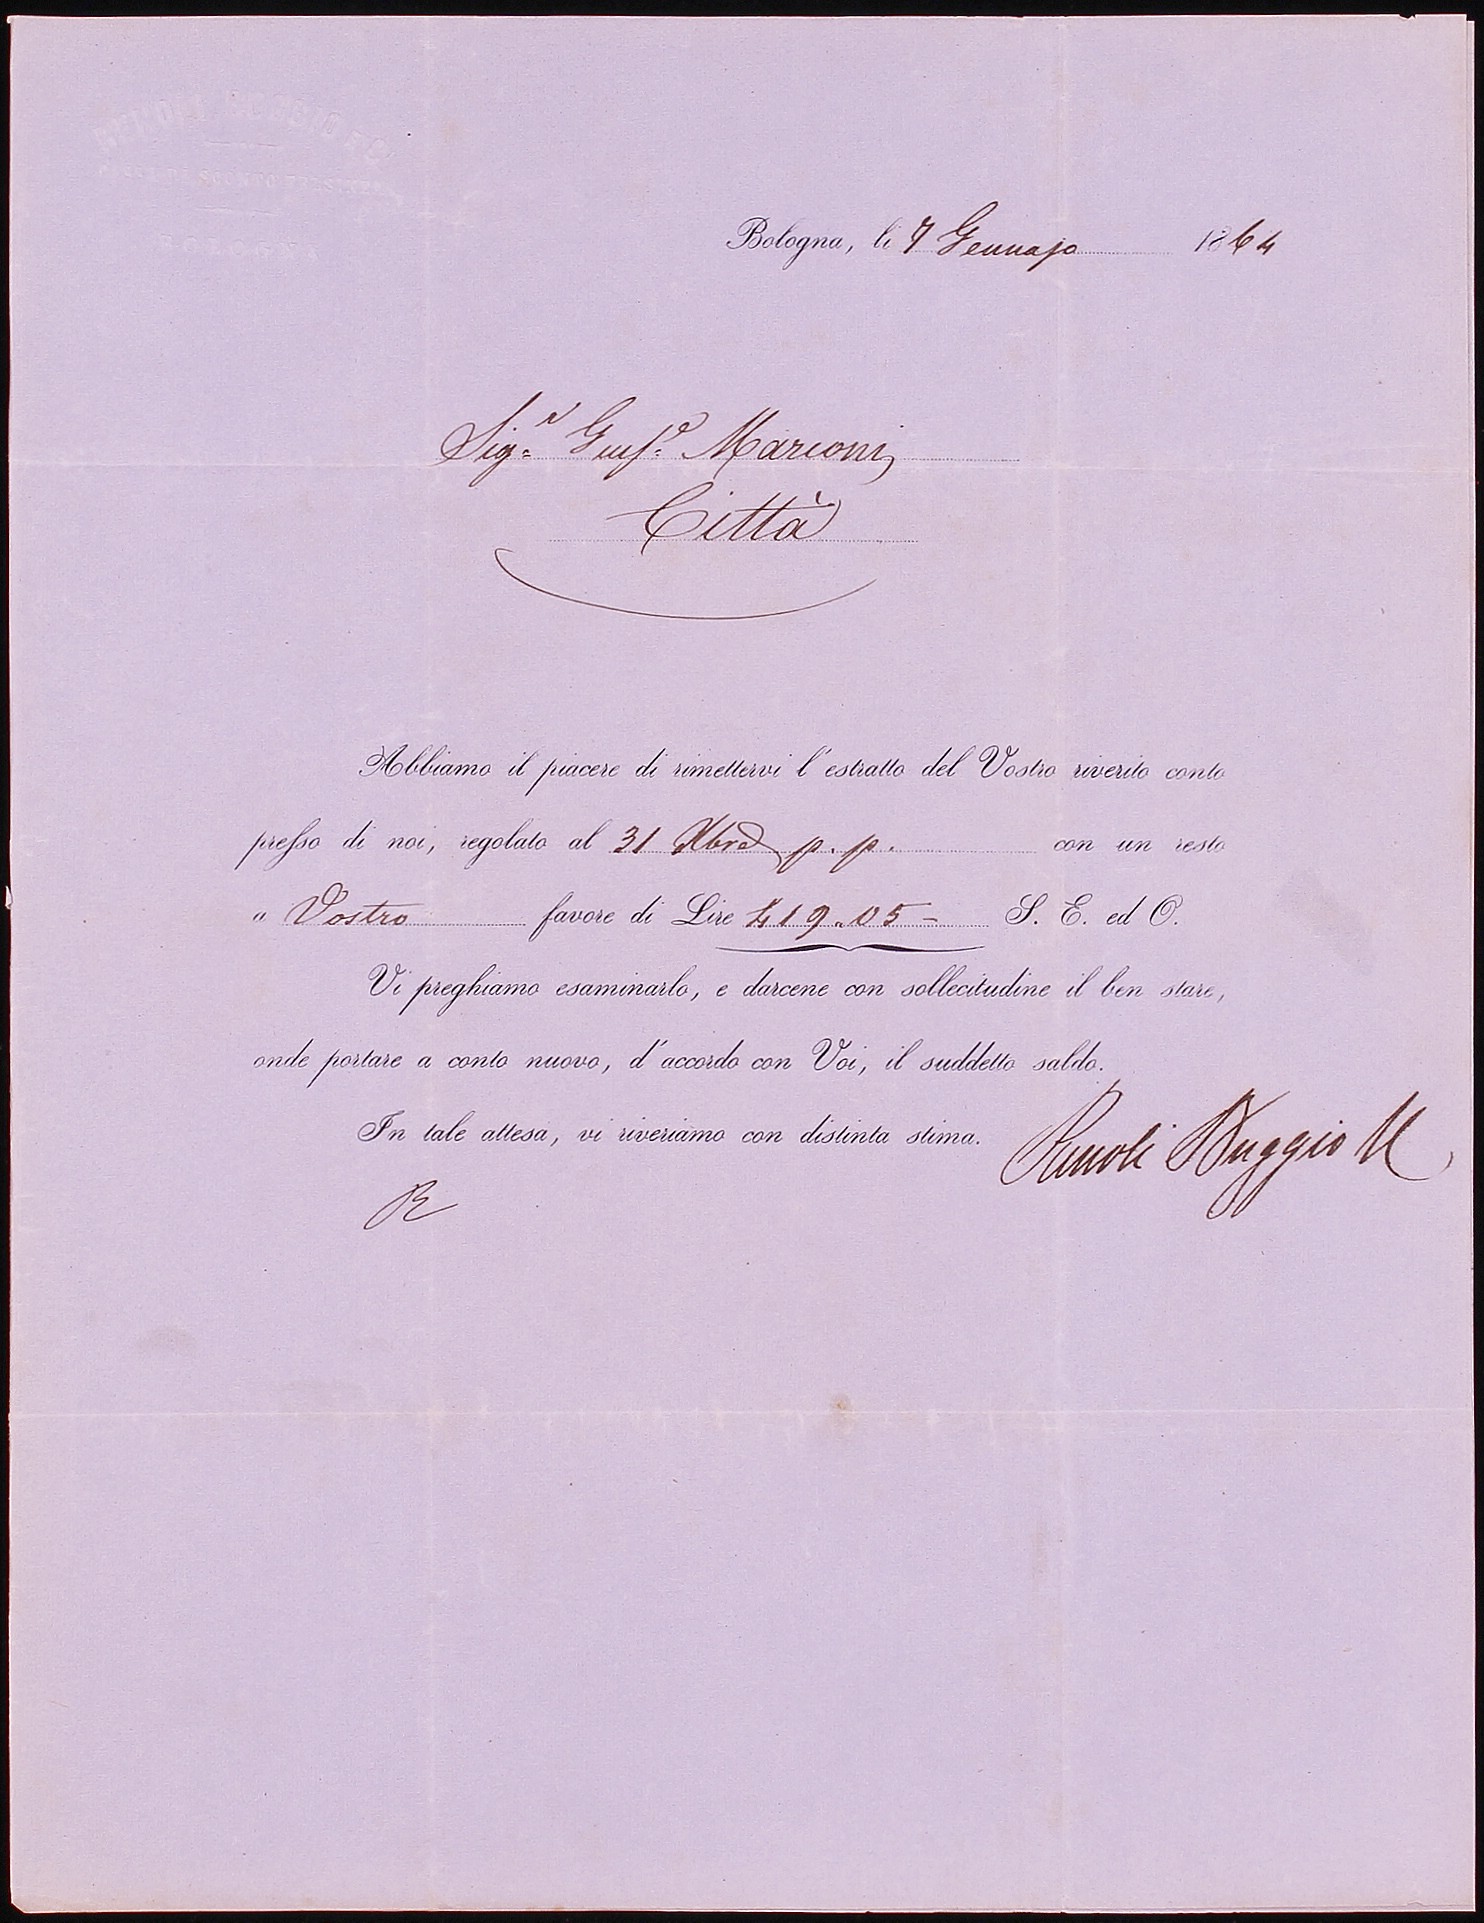 BOLOGNA
Bologna, li 7 Gennajo 1864
Sig.r Giusp.e Marconi,
Città
Abbiamo il piacere di rimettervi l'estratto del Vostro riverito conto
presso di noi, regolato al 31 Xbre p. p. con un resto
a Vostro favore di Lire 419.05 – S. E. ed O.
Vi preghiamo esaminarlo, e darcene con sollecitudine il ben stare,
onde portare a conto nuovo, d'accordo con Voi, il suddetto saldo.
In tale attesa, vi riveriamo con distinta stima.